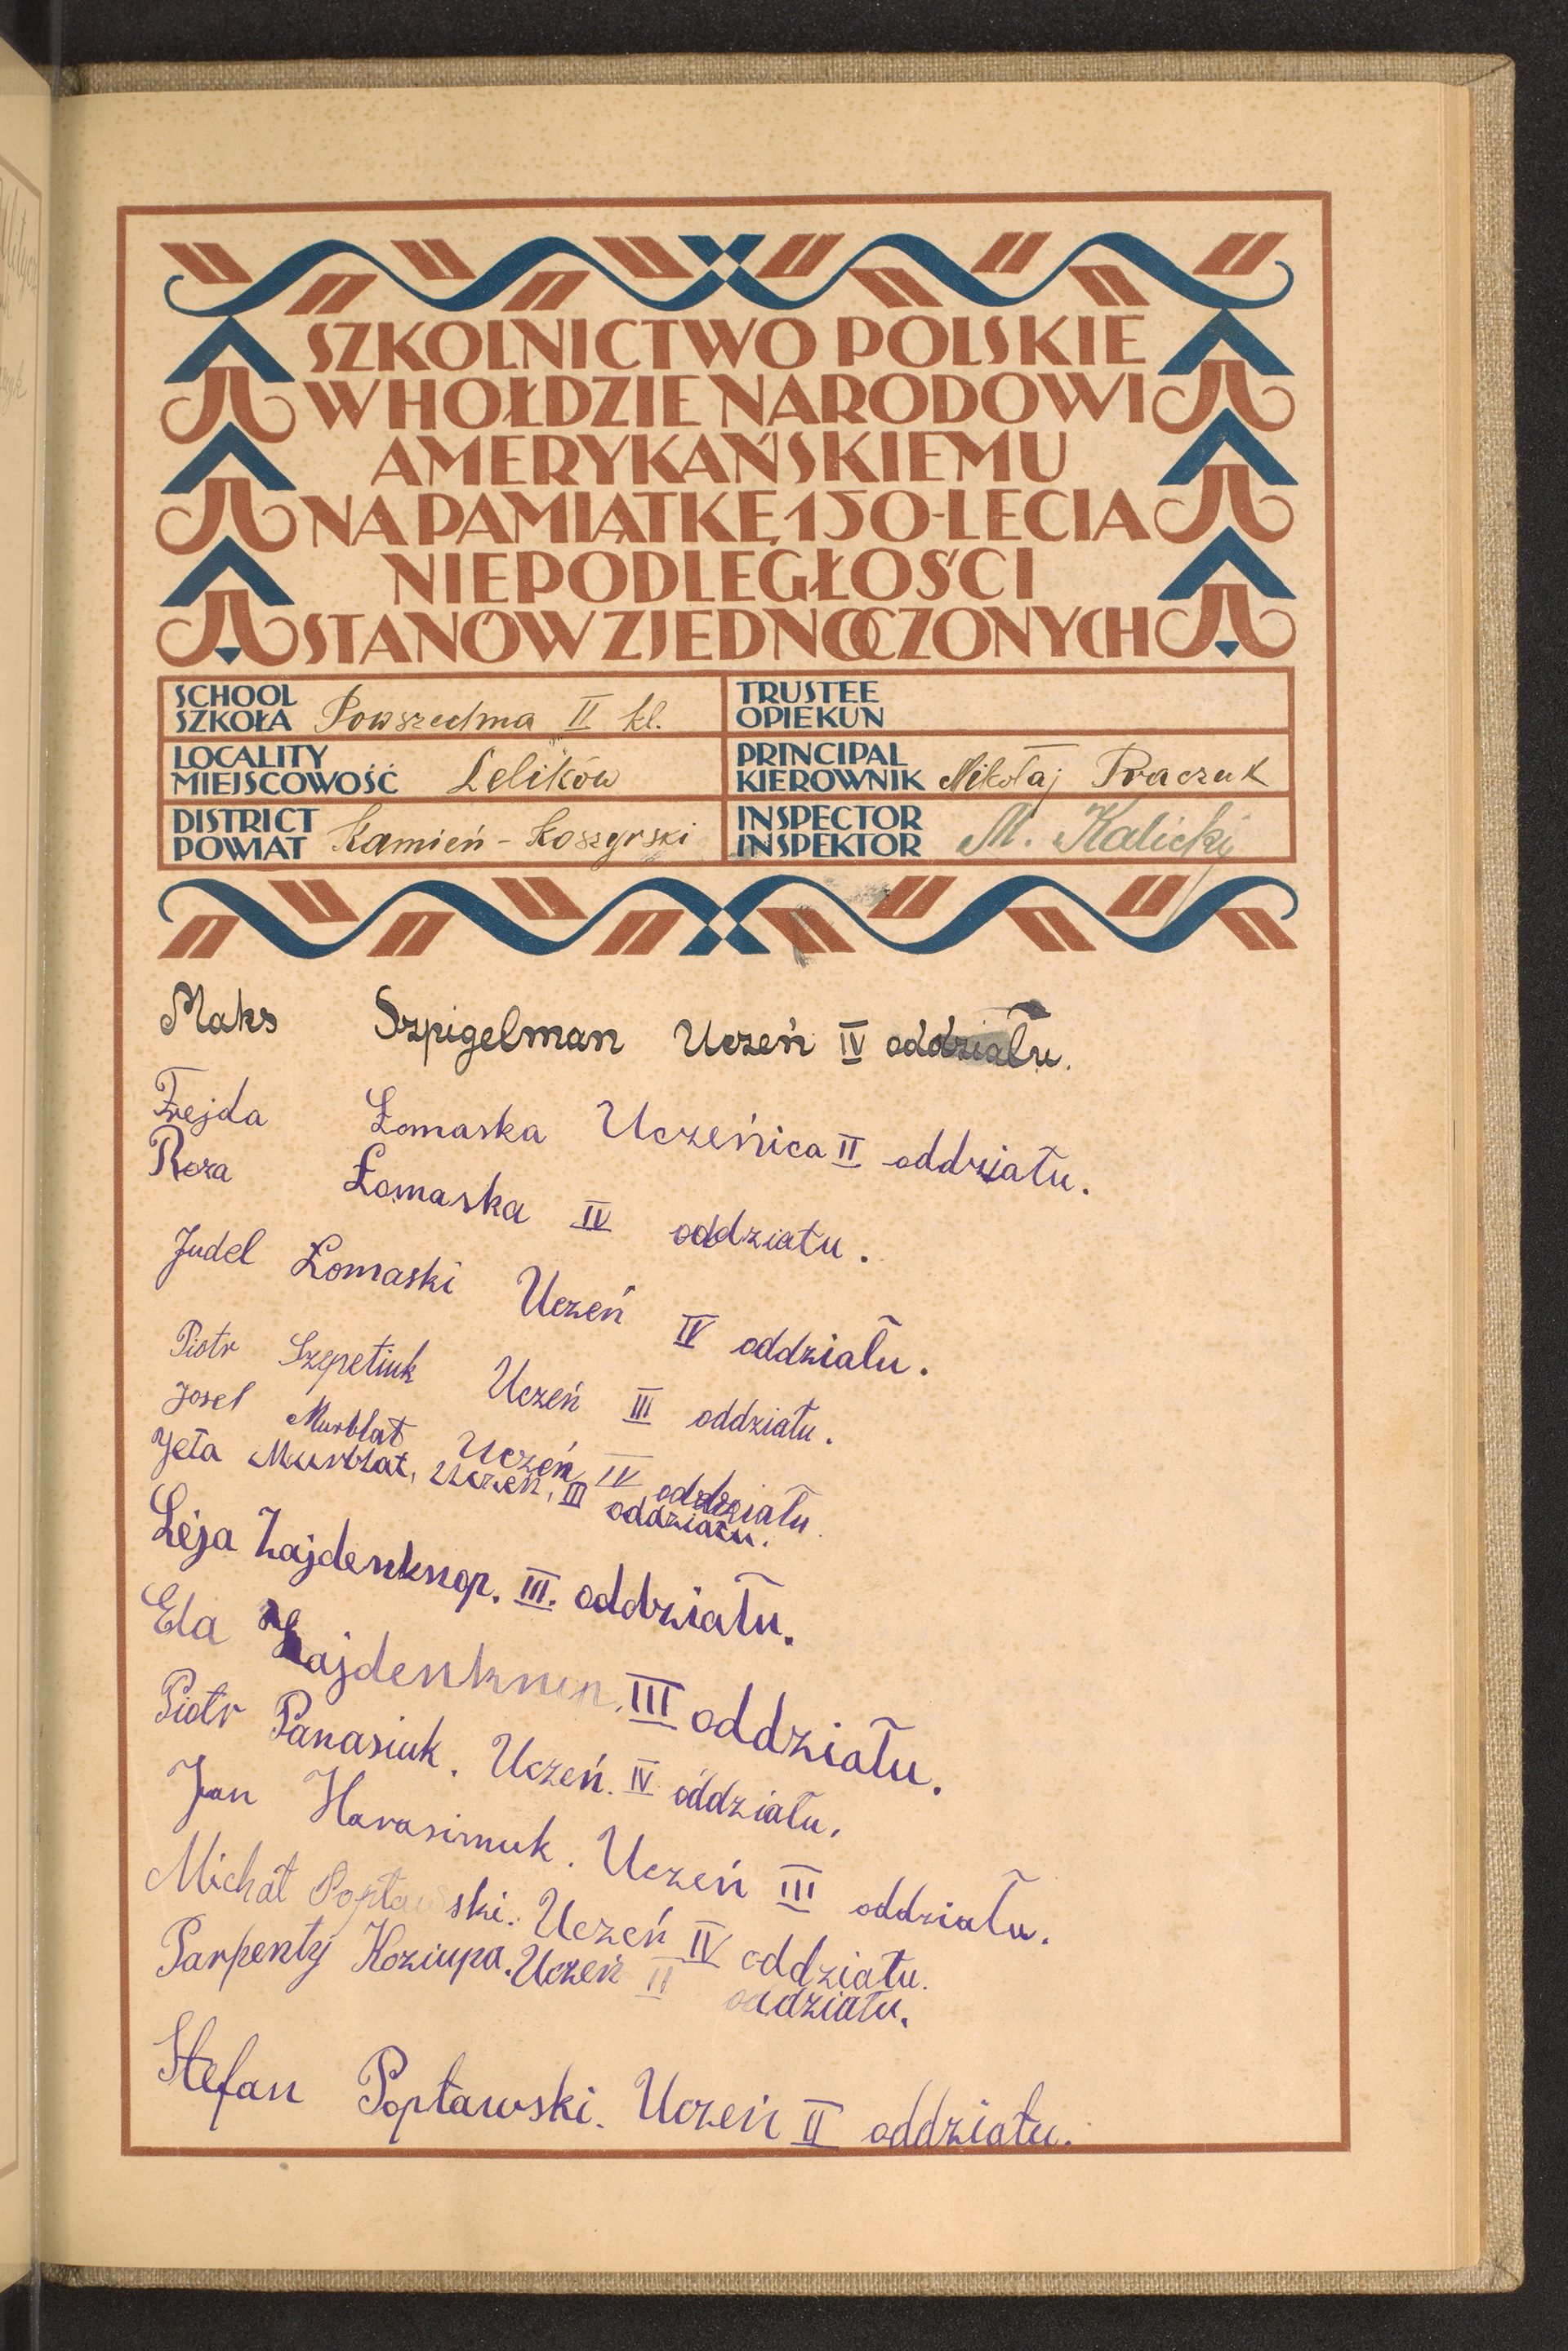 SZKOLNICTWO POLSKIE
W HOŁDZIE NARODOWI
AMERYKAŃSKIEMU
NA PAMIĄTKĘ 150-LECIA
NIEPODLEGŁOŚCI
STANÓW ZJEDNOCZONYCH
SCHOOL SZKOŁA Powszechna II kl.
TRUSTEE OPIEKUN
LOCALITY MIEJSCOWOŚĆ Lelików
PRINCIPAL KIEROWNIK Mikołaj Praczuk
DISTRICT POWIAT Kamień-Koszyrski
INSPECTOR INSPEKTOR M. Kalicki
Maks Szpigelman Uczeń IV oddziału.
Frejda Łomaska Uczeńica II oddziału.
Roza Łomaska IV oddziału.
Judel Łomaski Uczeń IV oddziału.
Piotr Szepetiuk Uczeń III oddziału.
Josel Murblat Uczeń IV oddziału.
Jeta Murblat, Uczeń, III oddziału.
Leja Zajdenknop. III. oddziału.
Ela Zajdenknop. III oddziału.
Piotr Panasiuk. Uczeń. IV oddziału.
Jan Harasimuk. Uczeń III oddziału.
Michał Popławski. Uczeń IV oddziału.
Parpenty Koziupa. Uczeń II oddziału.
Stefan Popławski. Uczeń II oddziału.